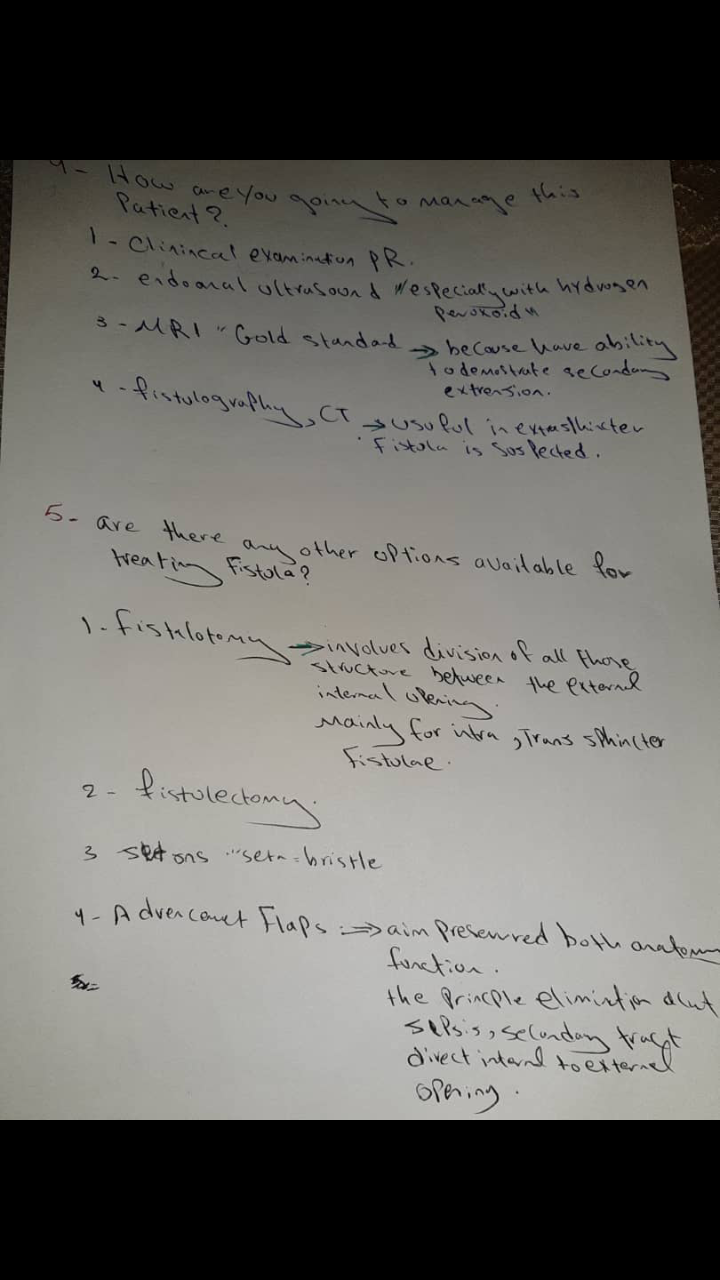 4- How are you going to manage this
Patient?
1- Clinincal examination PR.
2- endoanal ultrasound "especially with hydrogen
peroxoid"
3- MRI "Gold standard → because have ability
to demostrate secondary
extrension.
4- fistulography, CT → usuful in extrasphinxter
Fistula is suspected.
5- are there any other options available for
treating Fistula?
1- fistulotomy → involves division of all those
structure between the external
internal opening.
Mainly for intra, Trans sphincter
Fistulae.
2- fistulectomy.
3 setons "seta=bristle
4- Advencemet Flaps ⇒ aim preserved both anatomy
function.
the principle elimintion acut
sepsis, secondary tract
direct internal to external
opening.